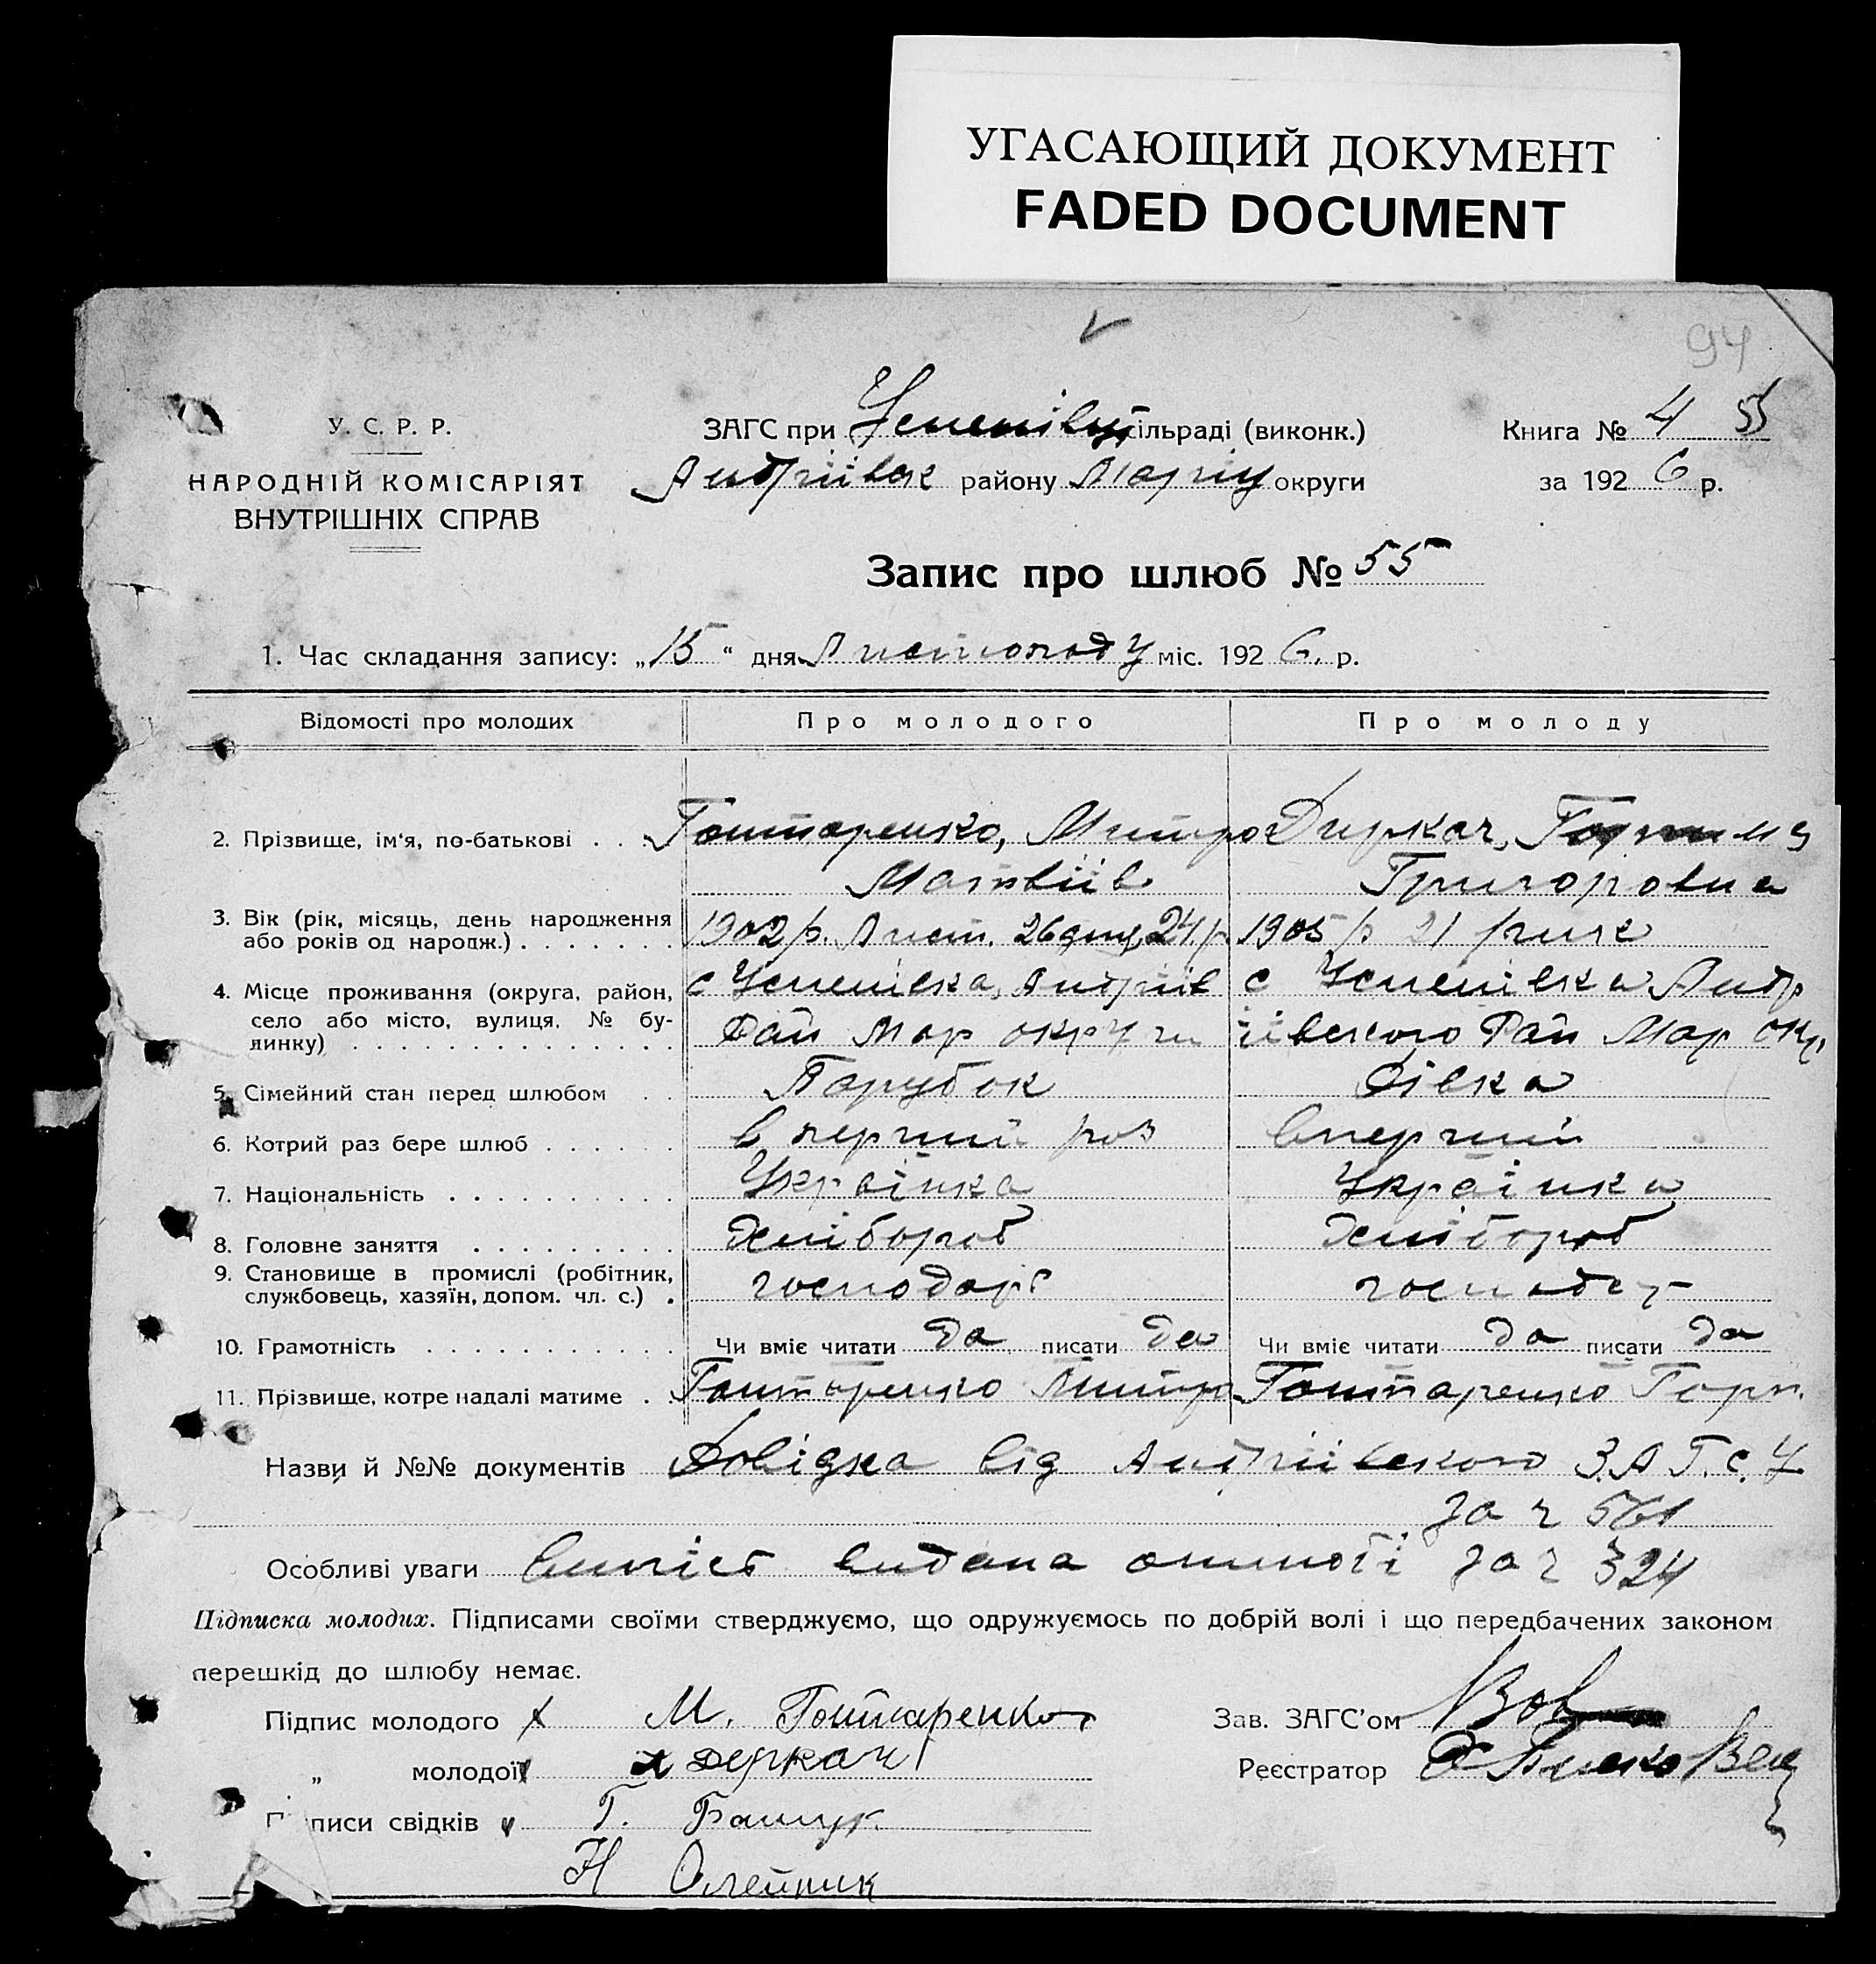 УГАСАЮЩИЙ ДОКУМЕНТ
FADED DOCUMENT
94
У. С. Р. Р.
НАРОДНІЙ КОМІСАРІЯТ
ВНУТРІШНІХ СПРАВ
ЗАГС при Успенівц сільраді (виконк.)
Андріївск району Маріу округи
Книга № 4 55
за 1926 р.
Запис про шлюб № 55
1. Час складання запису: „15“ дня Листопаду міс. 1926. р.
Відомості про молодих Про молодого Про молоду
2. Прізвище, ім'я, по-батькові . . . Гонтаренко, Митро Диркач,
Матвіїв Григоровна
3. Вік (рік, місяць, день народження 1902 р. Лист. 26 дну 24 р. 1905 р 21 рик
або років од народж.) . . . . . . .
4. Місце проживання (округа, район, с Успенівка, Андріїв с Успенівка Андр
село або місто, вулиця, № бу- Рай Мар округи іївского Рай Мар окр.
динку) . . . . . . . . . . . . . .
5. Сімейний стан перед шлюбом . . Парубок Дівка
6. Котрий раз бере шлюб . . . . . . в перший раз вперший
7. Національність . . . . . . . . . Українка Українка
8. Головне заняття . . . . . . . . . Хлібороб Хлібороб
9. Становище в промислі (робітник, господарь
службовець, хазяїн, допом. чл. с.) .
10. Грамотність . . . . . . . . . . . Чи вміє читати да писати да Чи вміє читати да писати да
11. Прізвище, котре надалі матиме . . Гонтаренко Митро Гонтаренко Горп.
Назви й №№ документів Довідка від Андріївского З.А.Г.С.У
за ч 561
Особливі уваги випісь видана за ч 324
Підписка молодих. Підписами своїми стверджуємо, що одружуємось по добрій волі і що передбачених законом
перешкід до шлюбу немає.
Підпис молодого х М. Гонтаренко Зав. ЗАГС'ом
„ молодої х Деркач Реєстратор
писи свідків Г. Бащук
Н Олейник